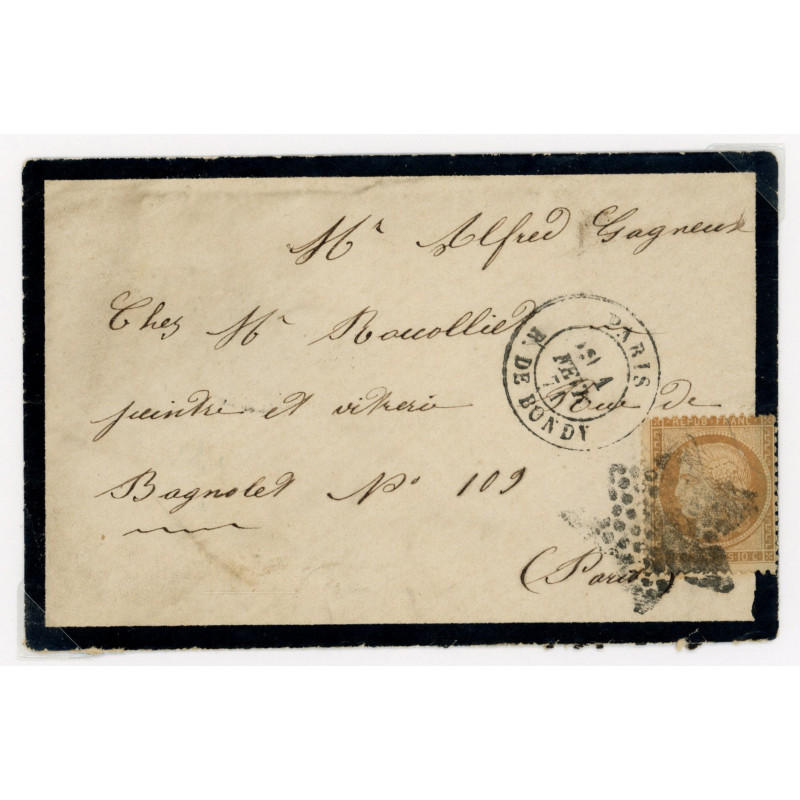 Mr Alfred Gagneux
Chez Mr Rouolliet
peintre et vitrerie Rue de
Bagnolet No 109
(Paris)
PARIS
R. DE BONDY
1
FEVR
71
REPUB FRANC
10 C